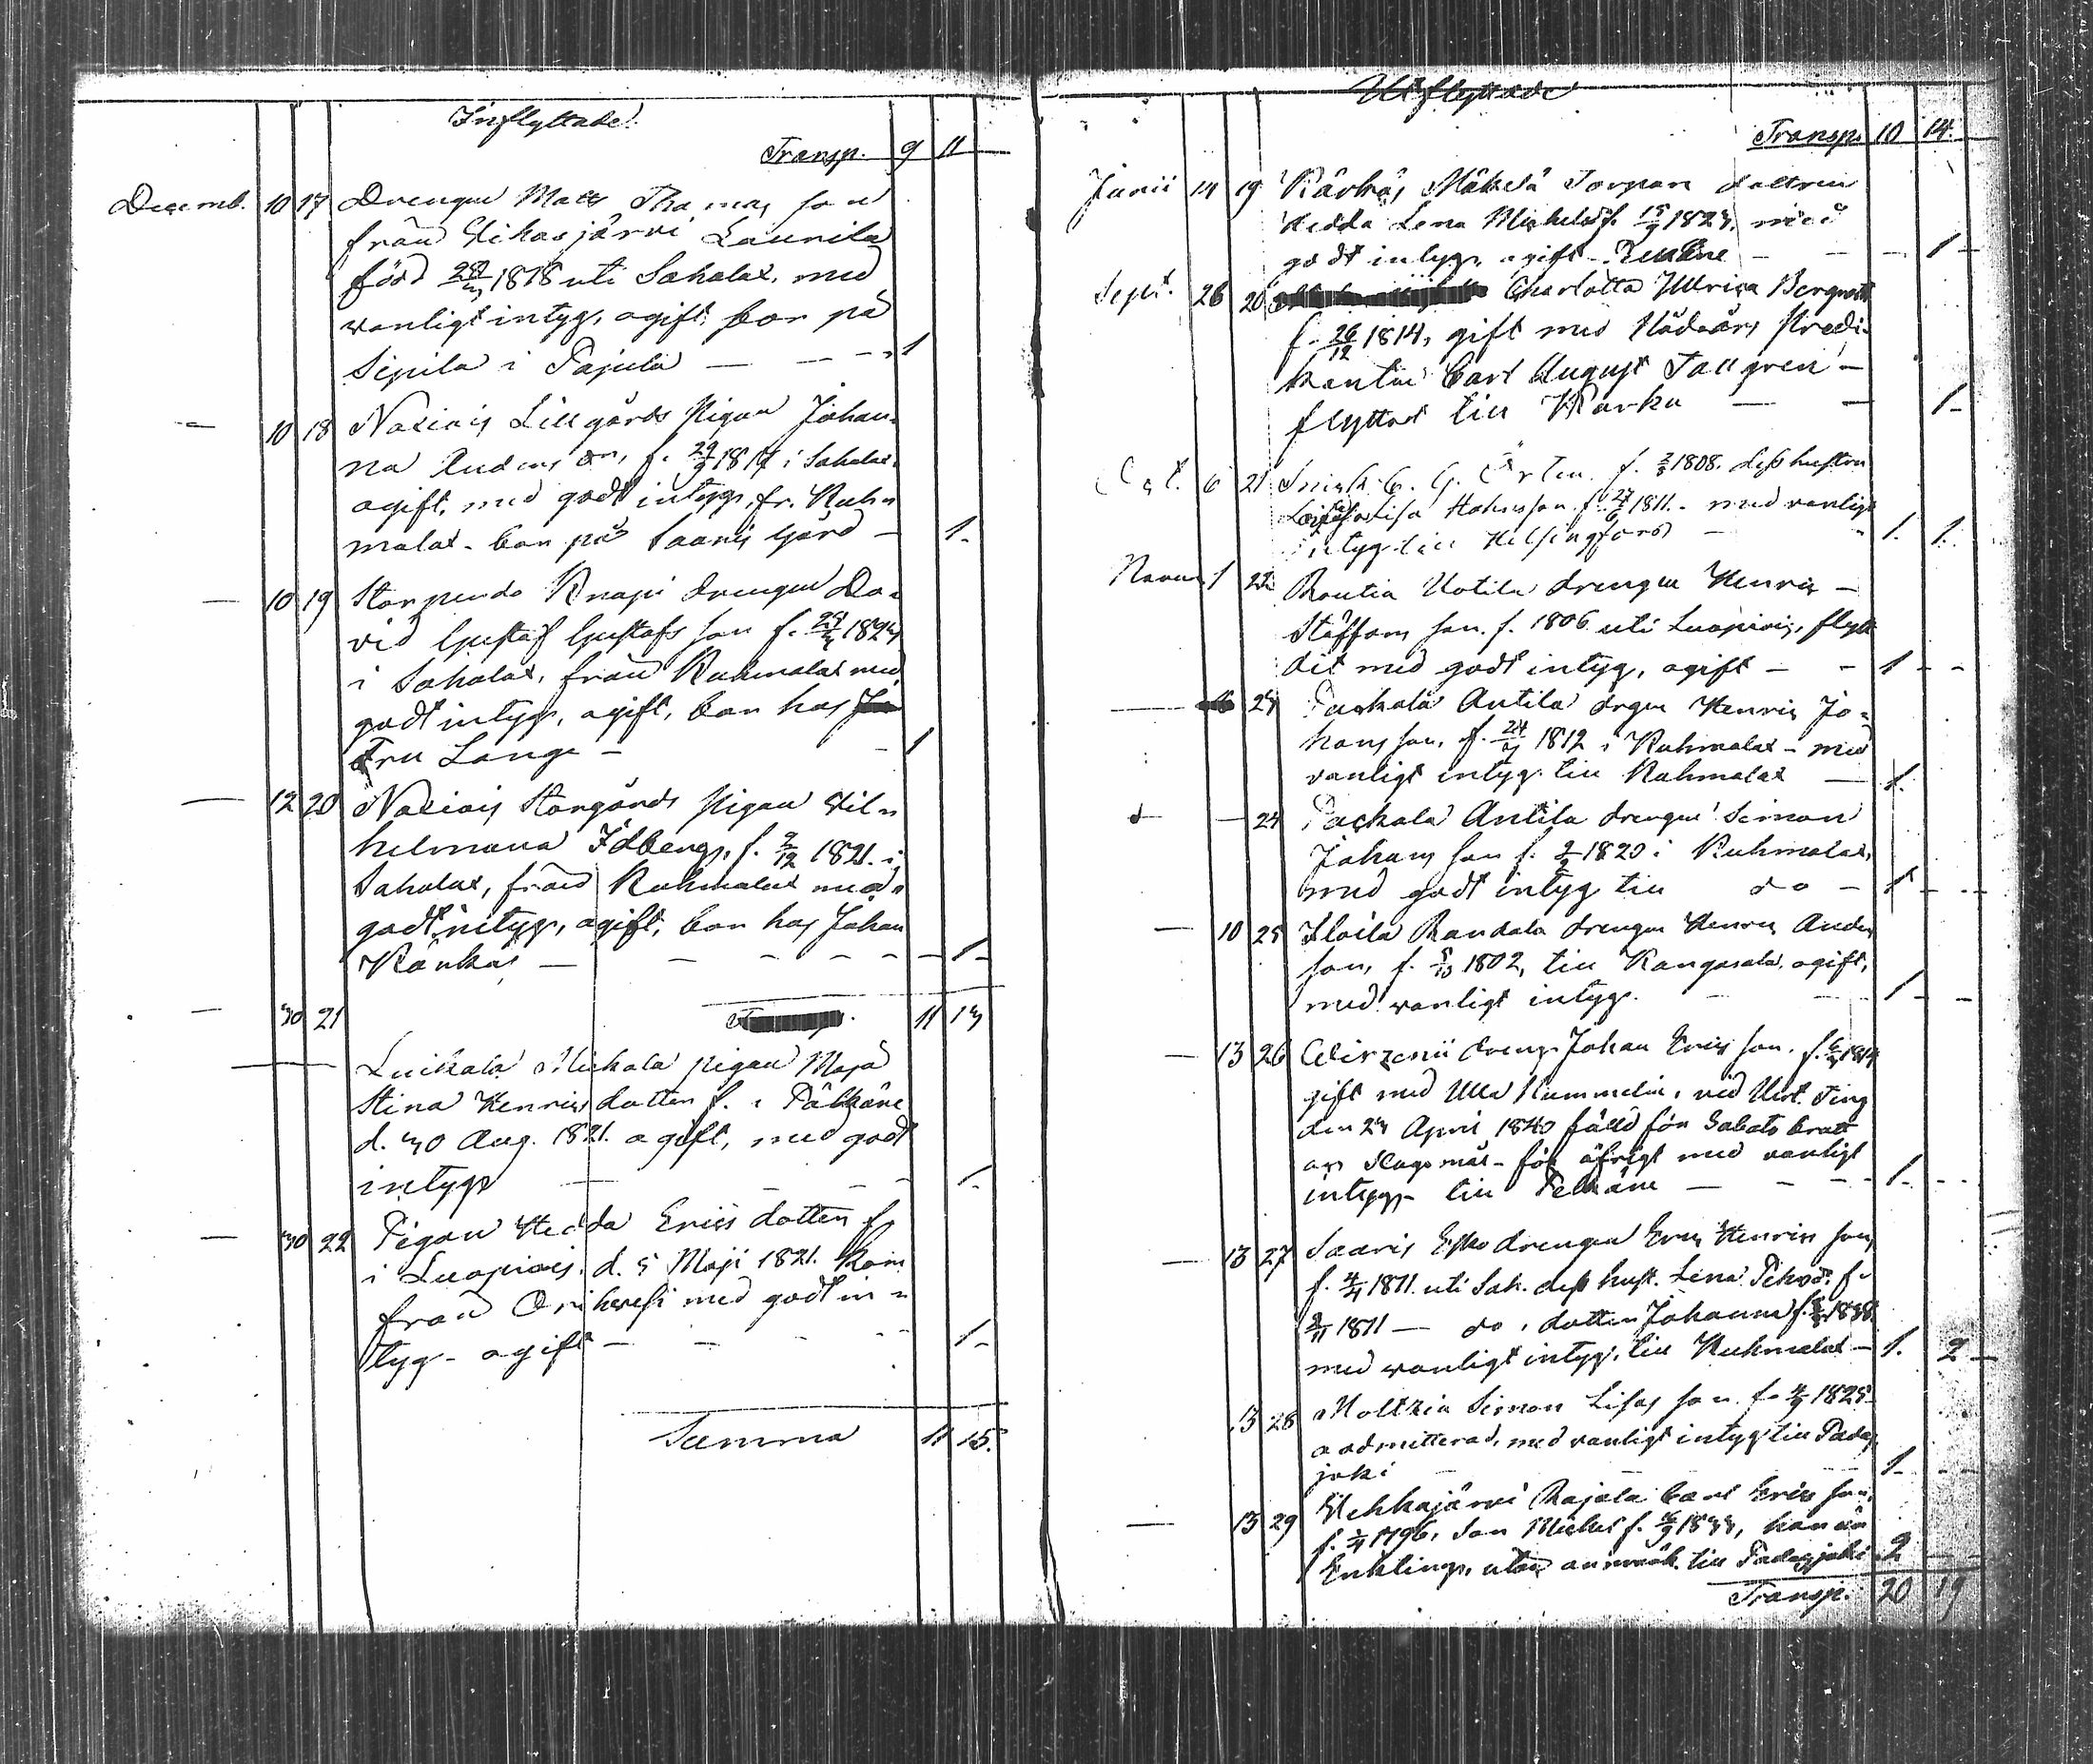 Inflyttade.
Transp. 9 11
Decemb. 10 17 Drengen Matts Thomas son
från Vihasjärvi Laurila
född 1818 uti Sahalax, med
vanligt intyg, ogift, bor på
Sipila i Pajula — — — 1
— 10 18 Naxiais Lillgårds Pigan Johan-
na Anders dr, f. 29/9 1817 i Sahalax
ogift, med godt intyg, fr. Kuh-
malax - bor på Saaris Gård — 1-
— 10 19 drengen Da-
vid Gustaf Gustafs son f.
i Sahalax, från Kuhmalax med
godt intyg, ogift, bor hos
Fru Lange - - 1
— 12 20 Naxiais Storgårds Pigan Vil-
helmina Idberg, f. 2/12 1821. i
Sahalax, från Kuhmalax med
godt intyg, ogift, bor hos Johan
Känkäs — - - - - 1-
— 30 21 11 13
Luikala Mickala pigan Maja
Stina Henrics dotter f. i Pälkäne
d. 30 Aug. 1821. ogift, med godt
intyg — - - - 1-
— 30 22 Pigan Hedda Erics dotter f.
i Luopiois. d. 5 Maji 1821. kom
från Orihvesi med godt in-
tyg - ogift — - - - 1-
Summa 11 15.
Utflyttade
Transp. 10 14.
Junii 14 19 Mäkelä Torpare dottren
Hedda Lena Michelsd. f. med
godt intyg, ogift - — 1-
Sept. 26 20 Charlotta Ulrica Bergroth
f. 26/12 1814, gift med Nådeårs Predi-
kanten Carl August Tallgren —
flyttat till Karku — — 1-
Oct. 6 21 C. G. f. 1808. dess hustru
Lisa f. 27/6 1811. - med vanligt
intyg till Helsingfors — - 1. 1.
Novem. 1 22 Rautia Uotila drengen Henric —
Staffans son f. 1806 uti Luopiois, flytt
dit med godt intyg, ogift — - 1 - -
— 23 Packala Antila drgen Henric Jo-
hans son, f. 1812 i Kuhmalax - med
vanligt intyg till Kuhmalax — 1.
d — 24 Packala Antila drengen Simon
Johans son f. 1820 i Kuhmalax,
med godt intyg till do — 1 - -
— 10 25 Iloila drengen Henric Anders
son, f. 1802, till Kangasala, ogift,
med vanligt intyg. — - 1 - -
— 13 26 dreng Johan Erics son.
gift med Ulla Hummelin, vid Urt. Ting
den 23 April 1840 fälld för Sabats brott
och Slagsmål - för öfrigt med vanligt
intyg - till Pelkäne — - - 1 - -
— 13 27 Saaris Esko drengen Eric Henrics son,
f. 1811. uti Sah. dess hust. Lena f.
1811 — do, dotter Johanna f. 1838.
med vanligt intyg, till Kuhmalax — 1. 2 —
13 28 Moltzia Simon Lisas son f. 1825
oadmitterad, med vanligt intyg till Padas-
joki — 1 - -
— 13 29 Vehkajärvi Rajala Carl Erics son,
f. 1796, Son Michel f. han är
Enkling, utan anmärk. till Padasjoki 2
Transp. 20 19